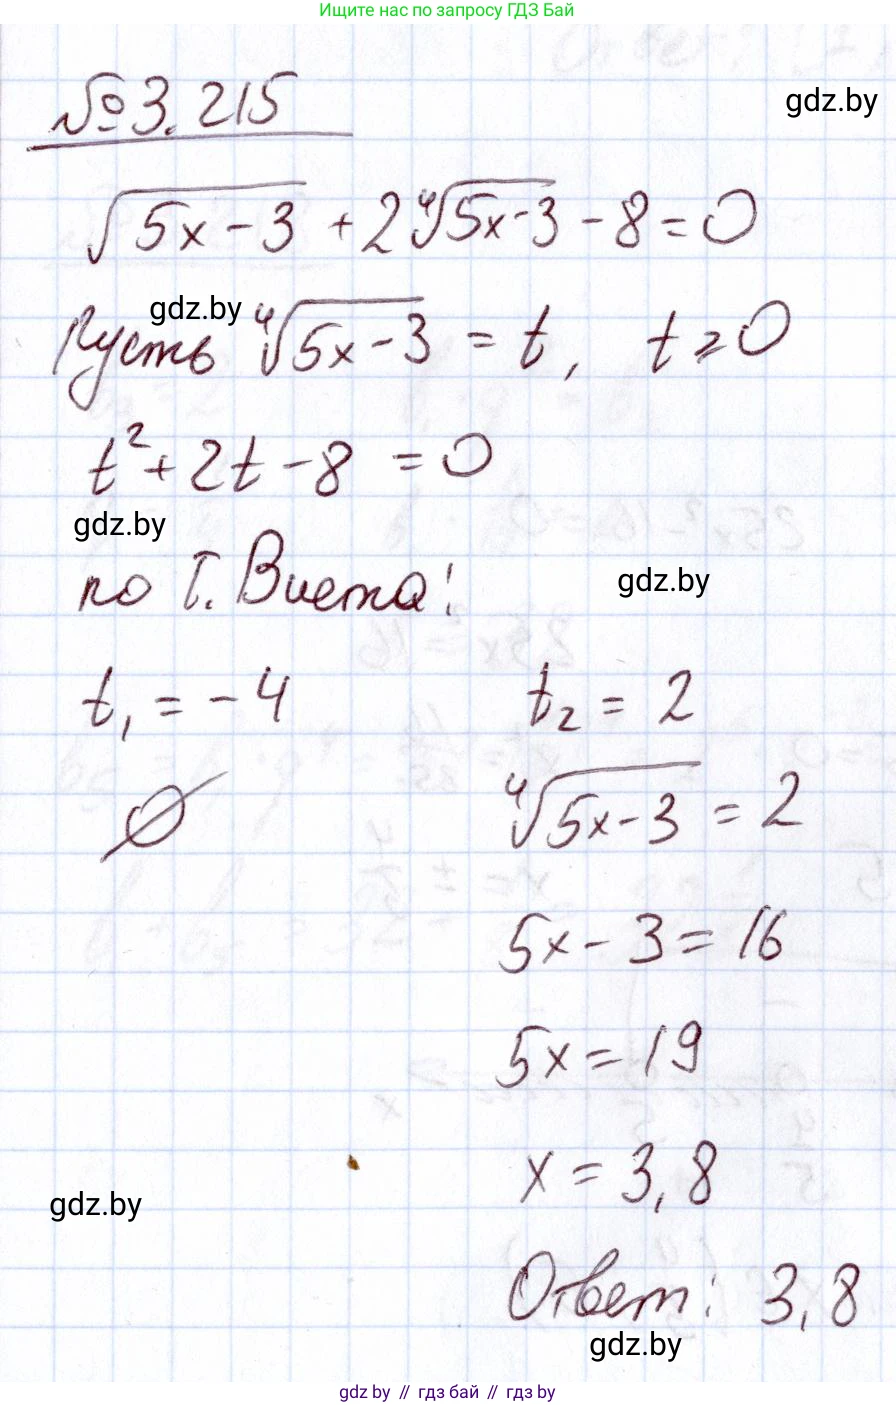 Ищите нас по запросу ГДЗ Бай
№3.215
gdz.by
√(5x-3) + 2∜(5x-3) - 8 = 0
gdz.by
Пусть ∜(5x-3) = t, t ≥ 0
t² + 2t - 8 = 0
gdz.by
по т. Виета:
gdz.by
t₁ = -4 t₂ = 2
∅ ∜(5x-3) = 2
5x - 3 = 16
5x = 19
x = 3,8
gdz.by
Ответ: 3,8
gdz.by
gdz by // гдз бай // gdz by